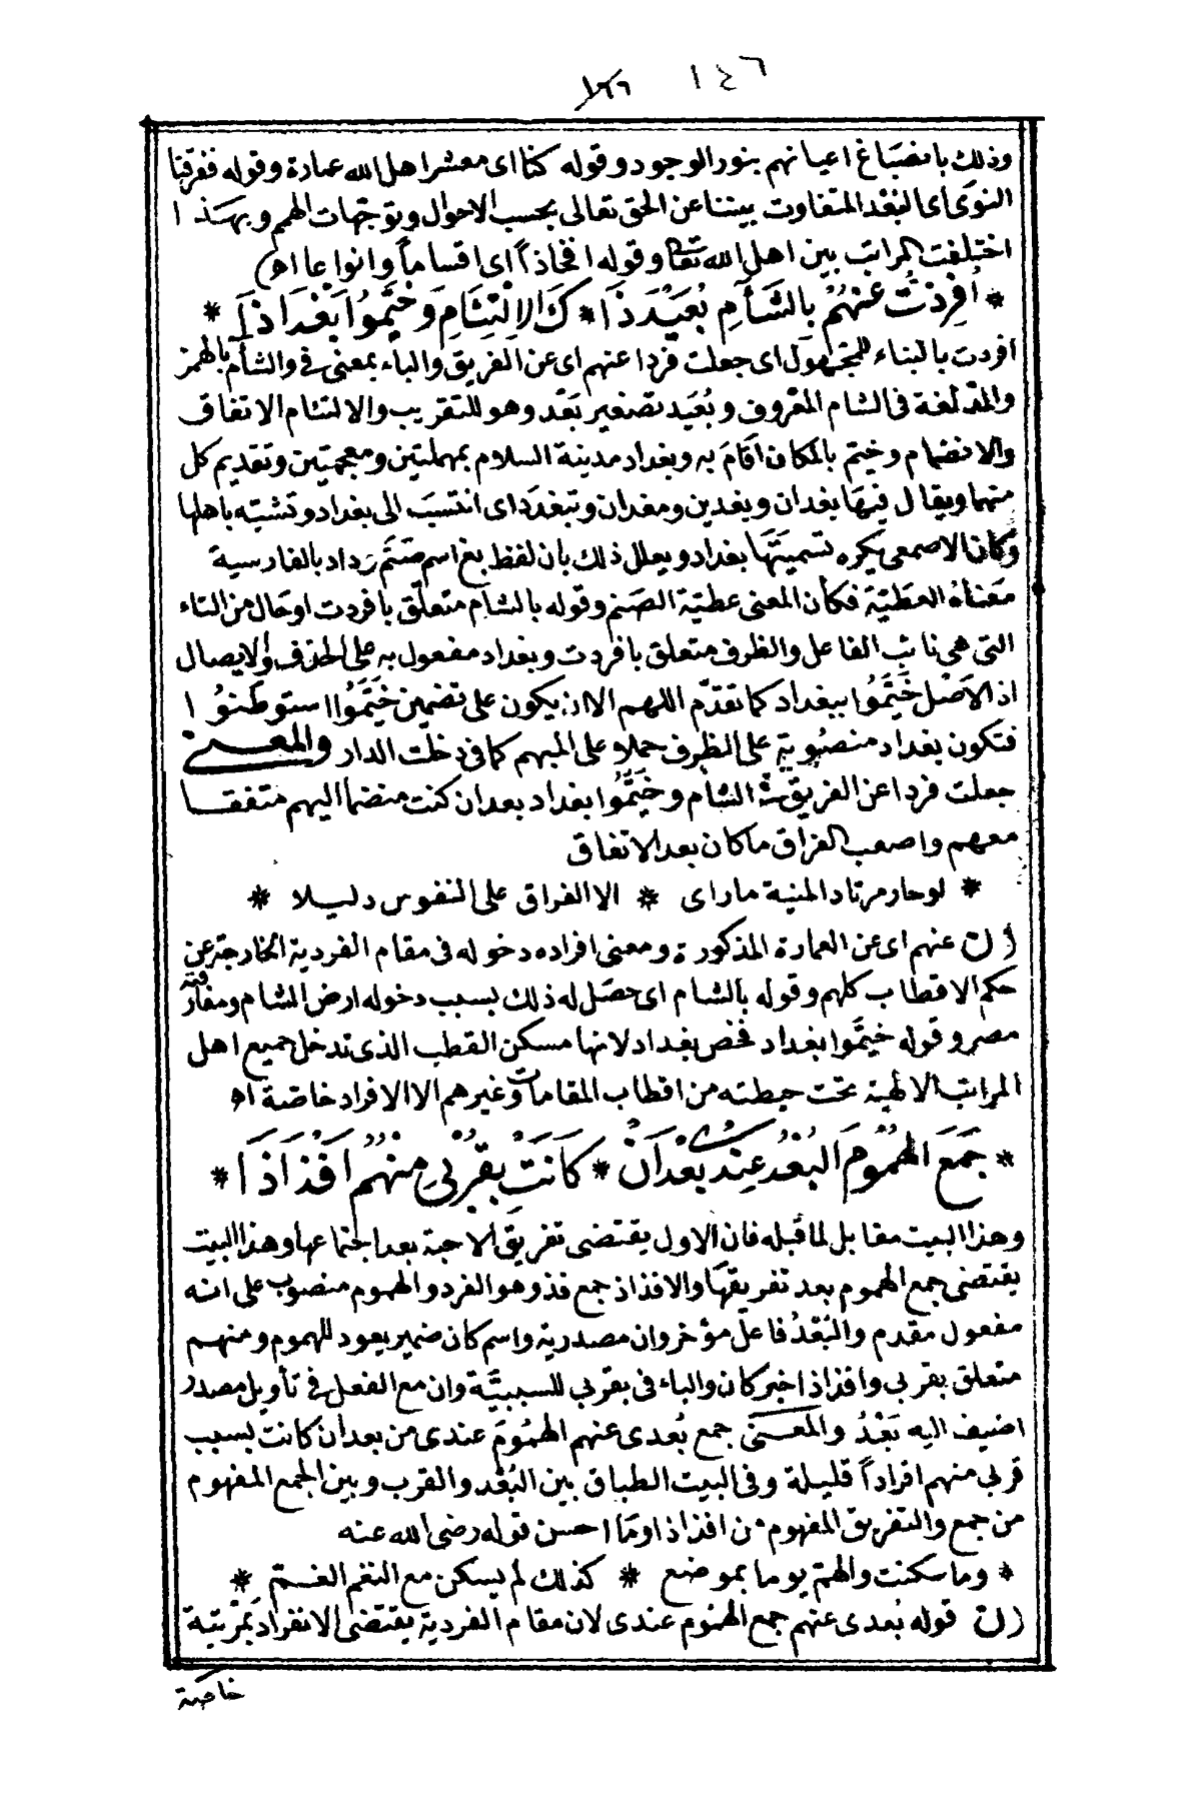 ١٤٦ ١٤٦
وذلك بانصباغ اعيانهم بنور الوجود وقوله كنا اى معشر اهل الله عمارة وقوله ففرقنا
النوى اى البعد المتفاوت بيننا عن الحق تعالى بحسب الاحوال وتوجهات الهمم وبهذا
اختلفت المراتب بين اهل الله تعالى وقوله افخاذاً اى اقساماً وانواعا اه
* اُفرِدْتُ عنهُمْ بالشَّأمِ بُعَيْدَ ذَا * كَ الاِلْتِئامِ وَخَيَّمُوا بَغْدَاذَا *
افردت بالبناء للمجهول اى جعلت فردا عنهم اى عن الفريق والباء بمعنى فى والشأم بالهمز
والمدّ لغة فى الشام المعروف وبُعَيد تصغير بَعْد وهو للتقريب والالتئام الاتفاق
والانضمام وخيّم بالمكان اقامَ به وبغداد مدينة السلام بمهملتين ومعجمتين وتقديم كل
منهما ويقال فيها بغدان وبغدين ومغدان وتبغددَ اى انتسبَ الى بغداد وتشبّه باهلها
وكان الاصمعى يكره تسميتَها بغداد ويعلل ذلك بان لفظ بغ اسم صنَم وداد بالفارسية
معناهُ العطيّة فكأن المعنى عطيّة الصّنم وقوله بالشأم متعلّق بافردت او حَال من التاء
التى هى نائب الفاعل والظرف متعلق بافردت وبغداد مفعول به على الحذف والايصال
اذ الاَصْل خَيَّمُوا ببغداد كما تقدّم اللهم الا ان يكون على تضمين خَيَّمُوا استوطنُوا
فتكون بغداد منصُوبة على الظرف حملا على المبهم كما فى دخلت الدار والمعنى
جعلت فردا عن الفريق فى الشأم وخَيَّمُوا بغداد بعد ان كنت منضما اليهم متفقا
معهم واصعب الفراق ما كان بعد الاتفاق
* لو حار مرتاد المنية ما راى * الا الفراق على النفوس دليلا *
(ن) عنهم اى عن العمارة المذكورة ومعنى افراده دخوله فى مقام الفردية الخارجة عن
حكم الاقطاب كلهم وقوله بالشام اى حصَل له ذلك بسبب دخوله ارض الشام ومفارقته
مصر وقوله خيَّموا بغداد فخص بغداد لانها مسكن القطب الذى تدخل جميع اهل
المراتب الالهية تحت حيطته من اقطاب المقامات وغيرهم الا الافراد خاصّة اه
* جَمَعَ الهُمُومَ البُعْدُ عِنْدِى بَعْدَ اَنْ * كَانَتْ بِقُرْبِى مِنْهُمُ اَفْذَاذَا *
وهذا البيت مقابل لما قبله فان الاول يقتضى تفريق الاحبة بعد اجتماعها وهذا البيت
يقتضى جمع الهموم بعد تفريقها والافذاذ جمع فذ وهو الفرد والهموم منصوب على انه
مفعول مقدم والبُعْدُ فاعل مؤخر وان مصدرية واسم كان ضمير يعود للهموم ومنهم
متعلق بقربى وافذاذا خبر كان والباء فى بقربى للسببيَّة وان مع الفعل فى تأويل مصدر
اضيف اليه بَعْدُ والمعنى جمع بُعدى عنهم الهمُومَ عندى من بعد ان كانت بسبب
قربى منهم افراداً قليلة وفى البيت الطباق بين البُعْد والقرب وبين الجمع المفهوم
من جمع والتفريق المفهوم من افذاذا وما احسن قوله رضى الله عنه
* وما سكنت والهمّ يوما بموضع * كذلك لم يسكن مع النغم الغم *
(ن) قوله بُعدى عنهم جمع الهمُوم عندى لان مقام الفردية يقتضى الانفراد بمرتبة
خاصة